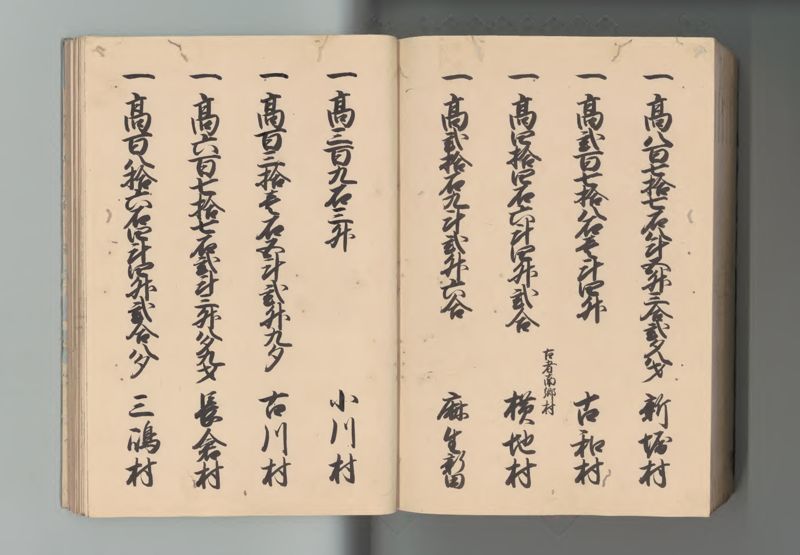 一 高八百七拾七石八斗五升三合弐夕八才 新堀村
一 高弐百七拾八石壱斗四升 古和村
古者南郷村
一 高四拾四石六斗四升弐合 横地村
一 高弐拾石九斗弐升六合 麻生新田
一 高三百九石三升 小川村
一 高百三拾壱石五斗弐升九夕 古川村
一 高六百七拾七石弐斗三升八夕九才 長倉村
一 高百八拾六石四斗四升弐合八夕 三嶋村